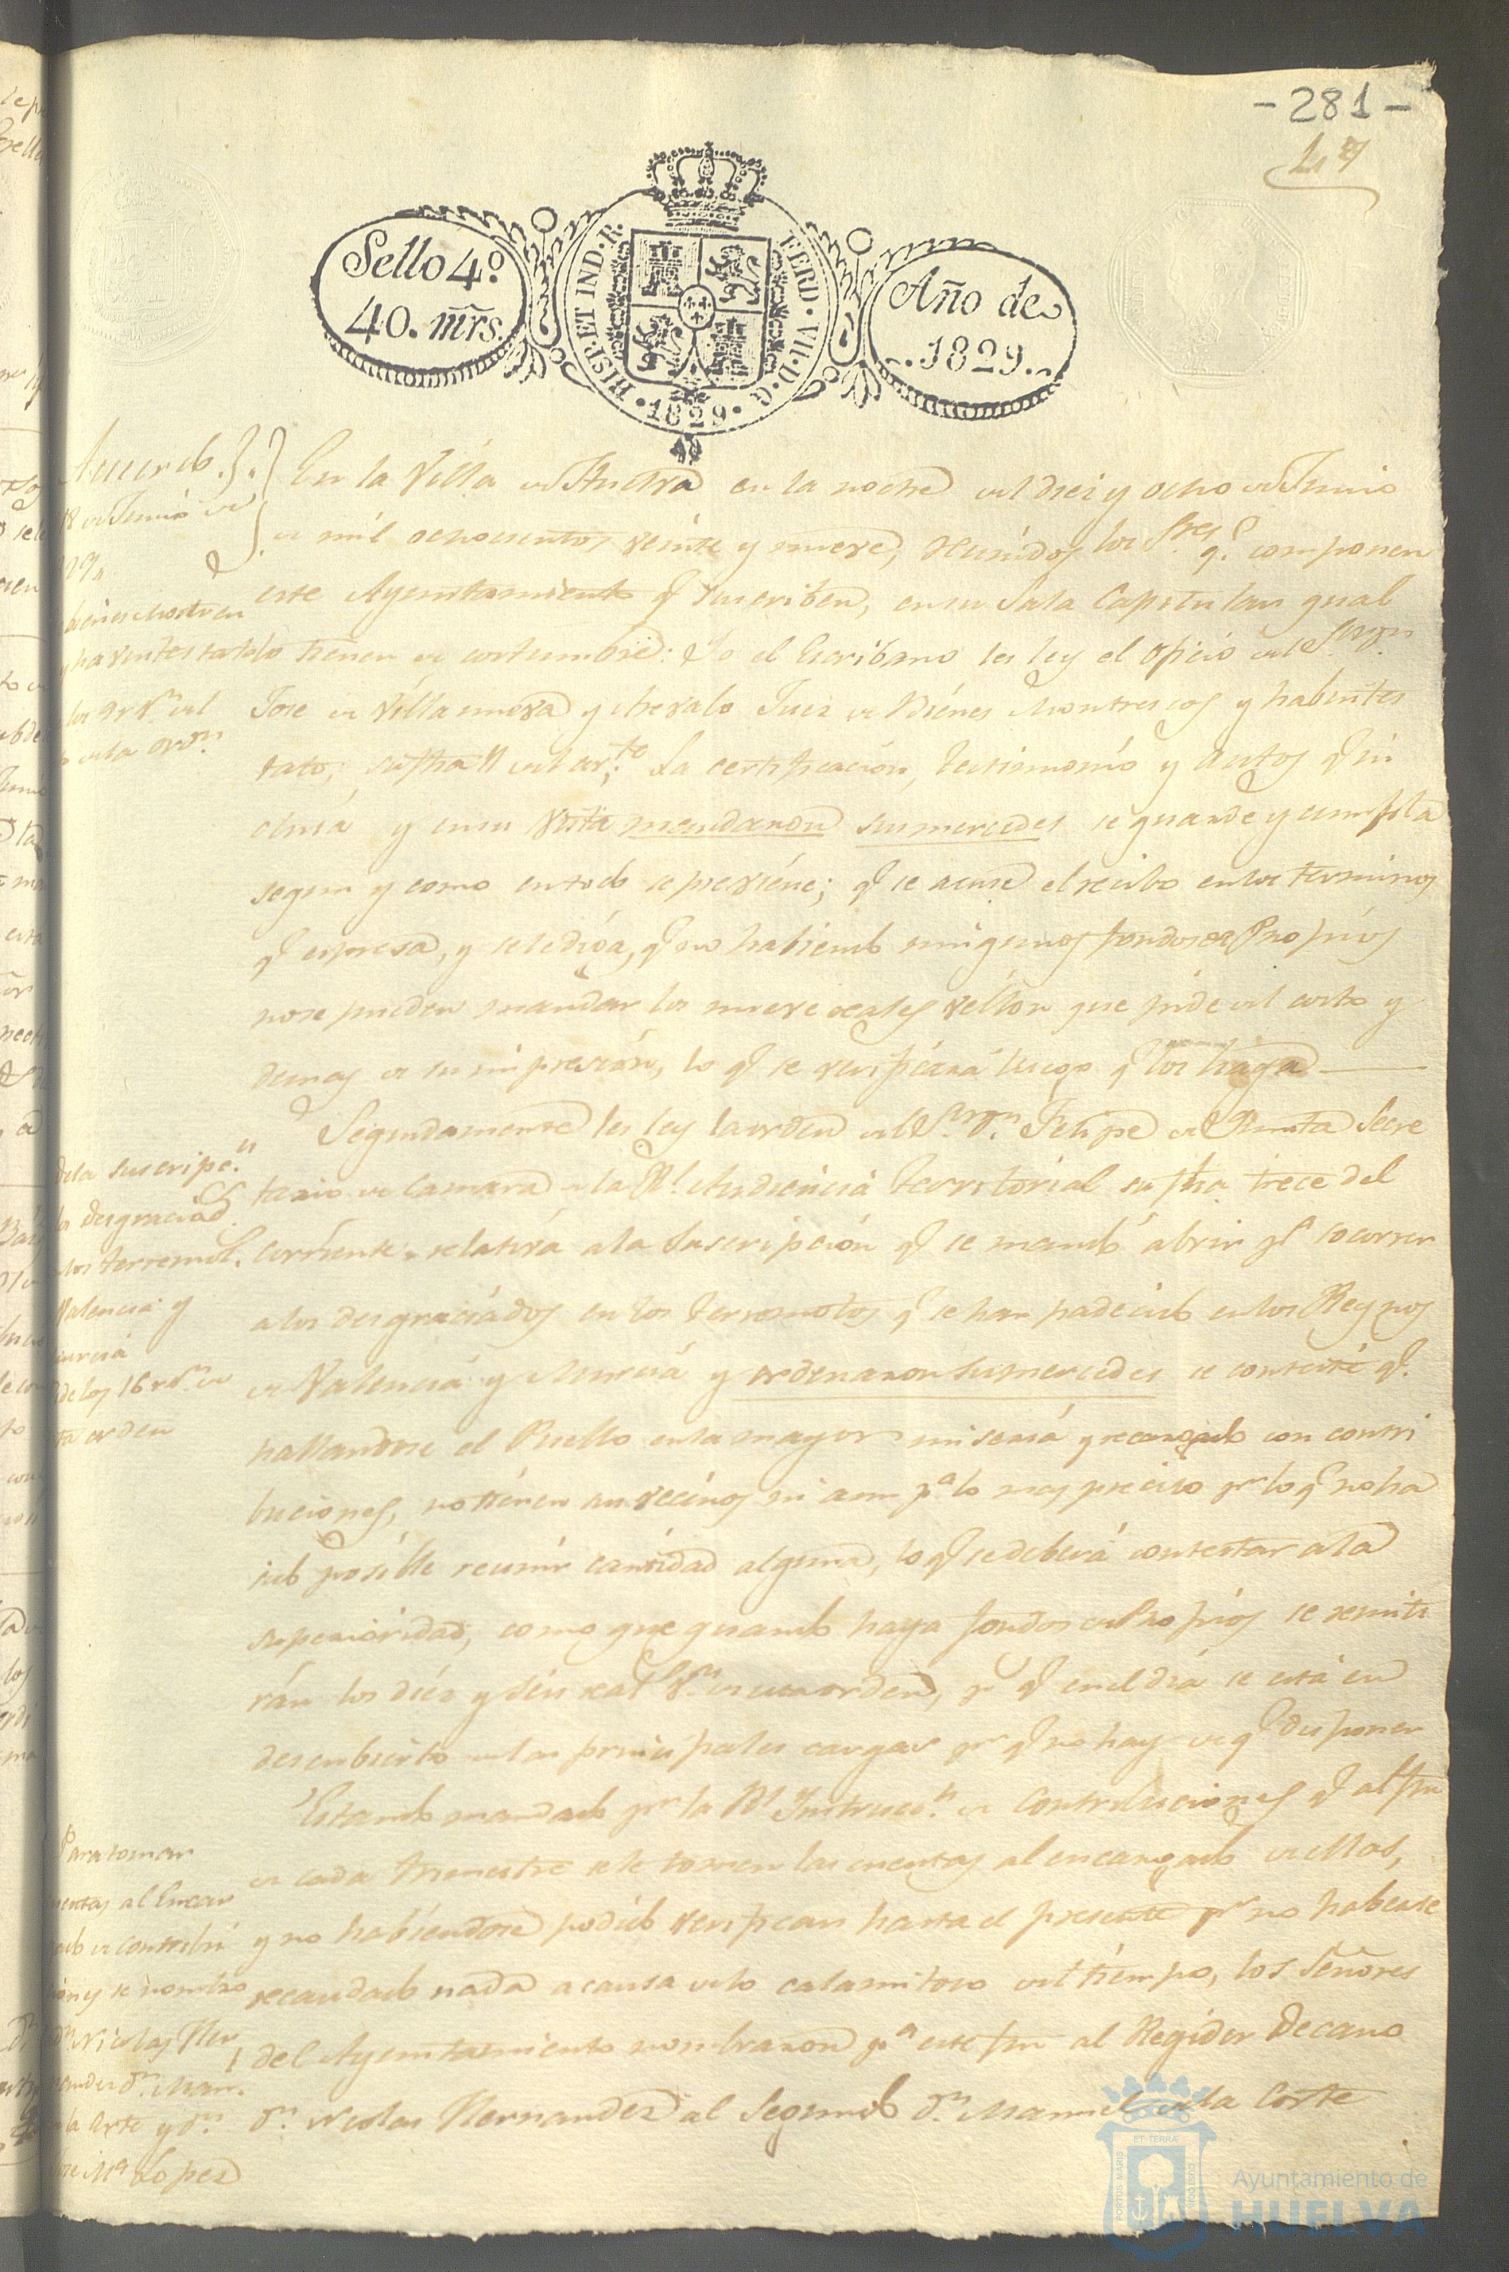 -281-
Sello 4º
40. mrs.
HISP. ET IND. R.
FERD. VII. D. G.
1829.
Año de
1829.
Acuerdo
18 de Junio de
En la Villa de Huelva en la noche del diez y ocho de Junio
de mil ochocientos veinte y nueve, reunidos los Sres q.e componen
este Ayuntamiento q.e suscriben, en su Sala Capitular qual
lo tienen de costumbre: Yo el Escribano les ley el oficio del S.r D.n
Jose de Villanueva y Arevalo Juez de Bienes Mostrencos y habintes
tato, su fha 11 del cor.te; La certificacion, testimonio y Autos q.e in
cluia y en su vista mandaron sus mercedes se guarde y cumpla
segun y como en todo se previene; q.e se acuse el recibo en los terminos
q.e espresa, y se le diga, q.e no habiendo ningunos fondos de Propios
no se pueden mandar los nueve reales vellon que pide del costo y
demas de su impresión, lo q.e se verificará luego q.e los haya
Segundamente les ley la orden del S.r D.n Felipe de Secre
tario de Camara de la Rl. Audiencia territorial su fha trece del
corriente relativa a la Suscripción q.e se mandó abrir p.a socorrer
a los desgraciados en los terremotos q.e se han padecido en los Reynos
de Valencia y Murcia y ordenaron sus mercedes se conteste q.e
hallandose el Pueblo en la mayor miseria y recargado con contri
buciones, no tienen sus vecinos ni aun p.a lo mas preciso p.r lo q.e no ha
sido posible reunir cantidad alguna, lo q.e se deberá contestar a la
superioridad, como que quando haya fondos de Propios se remiti
rán los diez y seis real.s v.n de esta orden, p.r q.e en el dia se está en
descubierto de las principales cargas p.r q.e no hay de q.e disponer
Estando mandado p.r la Rl. Instrucc.n de Contribuciones q.e al fin
de cada trimestre se le tomen las cuentas al encargado de ellas,
y no habiendose podido verificar hasta el presente p.r no haberse
recaudado nada a causa de lo calamitoso del tiempo, los Señores
del Ayuntamiento nombraron p.a este fin al Regidor Decano
D.n Nicolas Hernandez al Segundo D.n Manuel de la Corte
bienes Mostrencos
los 9 r.s v.n del
de la orn.
de la suscripc.n
a los desgraciad.s
los terremot.
Valencia y
Murcia
de los 16 r.s v.n de
esta orden
Para tomar
cuentas al Encar
gado de contribu
ciones se nombro
D.n Nicolas Her
nandez D.n Man.l
de la Corte y D.n
M.a Lopez
PORTUS MARIS
ET TERRÆ
CUSTODIA
Ayuntamiento de
HUELVA